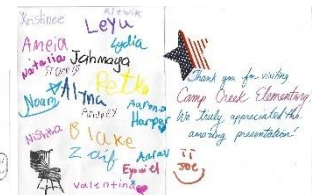 Kristinee
Ritwik
Leyu
Ameia
Lydia
Natalia
Jahmaya
Peth
Noam
Alyna
Audrey
Aarna
Harper
Nishka
Blake
Zaif
Aarav
Ezequiel
valentina
Thank you for visiting
Camp Creek Elementary.
We truly appreciated the
amazing presentation!
Joe